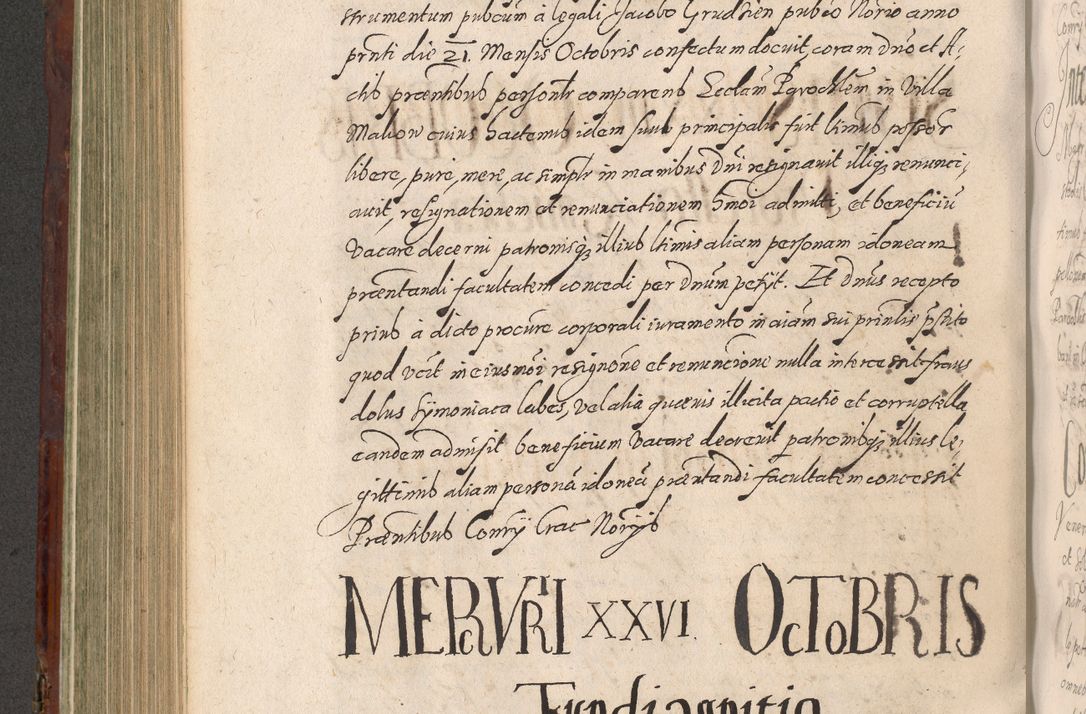 strumentum pubcum à legali Jacobo Grudsien pubco Norio anno
prnti die 21. Mensis Octobris confectum docuit, coram dno et A-
ctib præntibus personlr comparens Ecclam Parochlem in Villa
Makow cuius hactenus idem suus principalis fuit ltimus possor
libere, pure, mere, ac simplr in manibus Dni resignauit illiq; renunci,
auit, resignationem et renunciationem hmoi admitti, et beneficiū
vacare decerni patronisq; illius ltimis aliam personam idoneam
præntandi facultatem concedi per Dnum petyt. Et dnus recepto
prius à dicto procure corporali iuramento in aiam sui prinlis pstito
quod vcit in eiusmoi resignone et renuncione nulla intercessit fraus
dolus symoniaca labes, vel alia quæuis illicita pactio et corruptella
eandem admisit beneficium vacare decreuit patronibq; illius le,
gittimis aliam personā idoneā præntandi facultatem concessit
Præntibus Conry Crac Noryb
MERCURI XXVI. OCTOBRIS